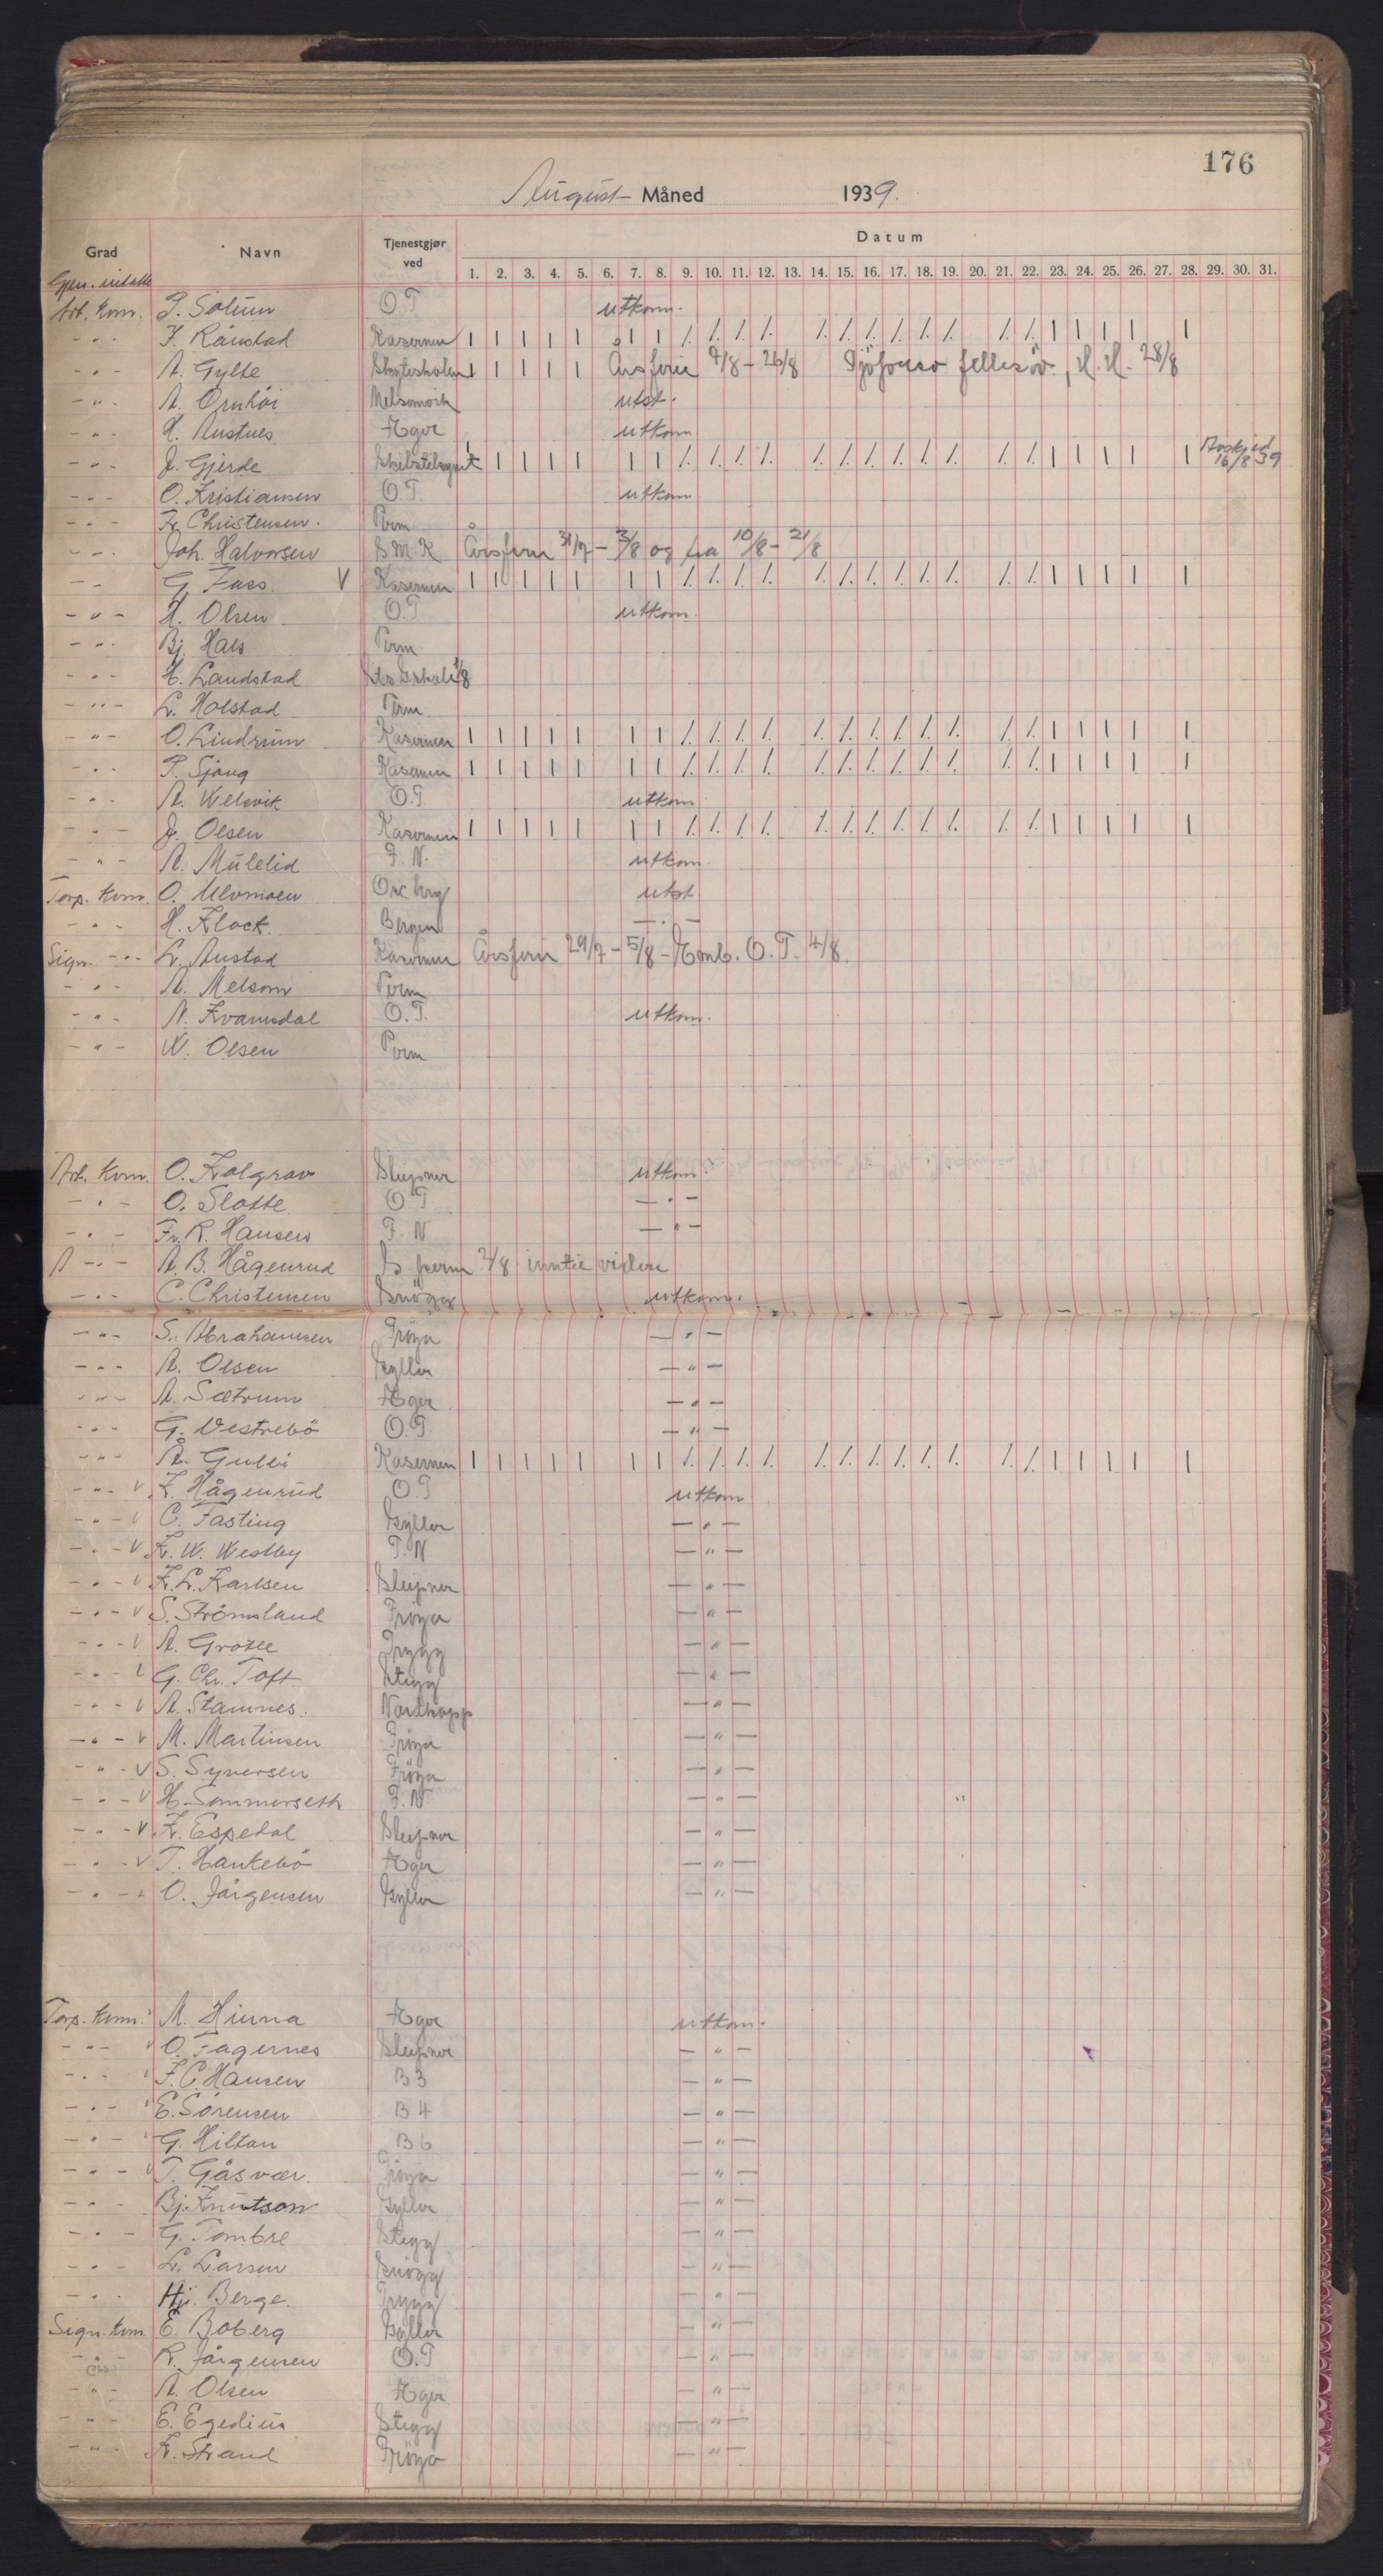 176
August Måned 1939.
Grad Navn Tjenestgjør ved Datum
1. 2. 3. 4. 5. 6. 7. 8. 9. 10. 11. 12. 13. 14. 15. 16. 17. 18. 19. 20. 21. 22. 23. 24. 25. 26. 27. 28. 29. 30. 31.
Art. kvm. P. Solum O T utkom.
- " - F. Rånstad Kasernen 1 1 1 1 1 1 1 /. /. /. /. /. /. /. /. /. /. /. /. 1 1 1 1 1
- " - A. Gylte Skyteskolen 1 1 1 1 1 Årsferie 7/8 - 26/8 fellesöv., H. H. 28/8
- " - A. Örnhöi Melsomvik utst.
- " - H. Austnes Æger utkom
- " - J. Gjerde 1 1 1 1 1 1 1 /. /. /. /. /. /. /. /. /. /. /. /. 1 1 1 1 1 Avskjed 16/8 39
- " - O. Kristiansen O.T. utkom
- " - Fr. Christensen. Perm
- " - Joh. Halvorsen S M. K Årsferie 31/7 - 3/8 og fra 10/8 - 21/8
- " - G. Faes. V Kasernen 1 1 1 1 1 1 1 /. /. /. /. /. /. /. /. /. /. /. /. 1 1 1 1 1
- " - H. Olsen O.T utkom.
- " - Bj. Hals Perm.
- " - H. Landstad 1/8
- " - L. Holstad Perm.
- " - O. Lindrum Kasernen 1 1 1 1 1 1 1 /. /. /. /. /. /. /. /. /. /. /. /. 1 1 1 1 1
- " - P. Sjong Kasernen 1 1 1 1 1 1 1 /. /. /. /. /. /. /. /. /. /. /. /. 1 1 1 1 1
- " - A. Welsvik O.T utkom
- " - J. Olsen Kasernen 1 1 1 1 1 1 1 /. /. /. /. /. /. /. /. /. /. /. /. 1 1 1 1 1
- " - A. Mulelid F. N. utkom.
Torp. kvm. O. Ulvmoen Oscborg utst
- " - H. Klock. Bergen - " -
Sign. - " - L. Austad Kasernen Årsferie 29/7 - 5/8 - Emb. O. T. 4/8.
- " - A. Melsom Perm
- " - N. Kvamsdal O.T. utkom.
- " - W. Olsen Perm
Art. kvm. O. Kolgrov Sleipner utkom.
- " - O. Slotte. O T - " -
- " - Fr. R. Hansen F. N - " -
A - " - A. B. Hågenrud S perm 2/8 inntil videre
- " - C. Christensen Snögg utkom.
- " - S. Abrahamsen Fröya - " -
- " - A. Olsen Gyller - " -
- " - A. Sætrum Æger - " -
- " - G. Vestrebö O.T. - " -
- " - Å. Gulli Kasernen 1 1 1 1 1 1 1 /. /. /. /. /. /. /. /. /. /. /. /. 1 1 1 1 1
- " - V K. Hågenrud O.T utkom
- " - V C. Fasting Gyller - " -
- " - V K. W. Westby F. N - " -
- " - V K. L. Karlsen Sleipner - " -
- " - V S. Strömsland Fröya - " -
- " - V A. Grotle Trygg - " -
- " - V G. Chr. Toft Stegg - " -
- " - V A. Stamnes. Nordkapp - " -
- " - V M. Martinsen Fröya - " -
- " - V S. Syversen Fröya - " -
- " - V H. Sommerseth F. N - " -
- " - V K. Espedal Sleipner - " -
- " - V T. Haukebö Æger - " -
- " - V O. Jörgensen Gyller - " -
Torp. kvm. M. Hinna Æger utkom.
- " - V O. Fagernes Sleipner - " -
- " - V F. C. Hansen B 3 - " -
- " - V E. Sörensen B 4 - " -
- " - V G. Hiltan B 6 - " -
- " - V T. Gåsvær. Fröya - " -
- " - Bj. Knutson Gyller - " -
- " - G. Tombre Stegg - " -
- " - L. Larsen Snögg - " -
- " - Hj. Berge. Trygg - " -
Sign. kvm. E. Boberg Gyller - " -
- " - R. Jörgensen O.T - " -
- " - A. Olsen Æger - " -
- " - E. Egedius Stegg - " -
- " - K. Strand Fröya - " -